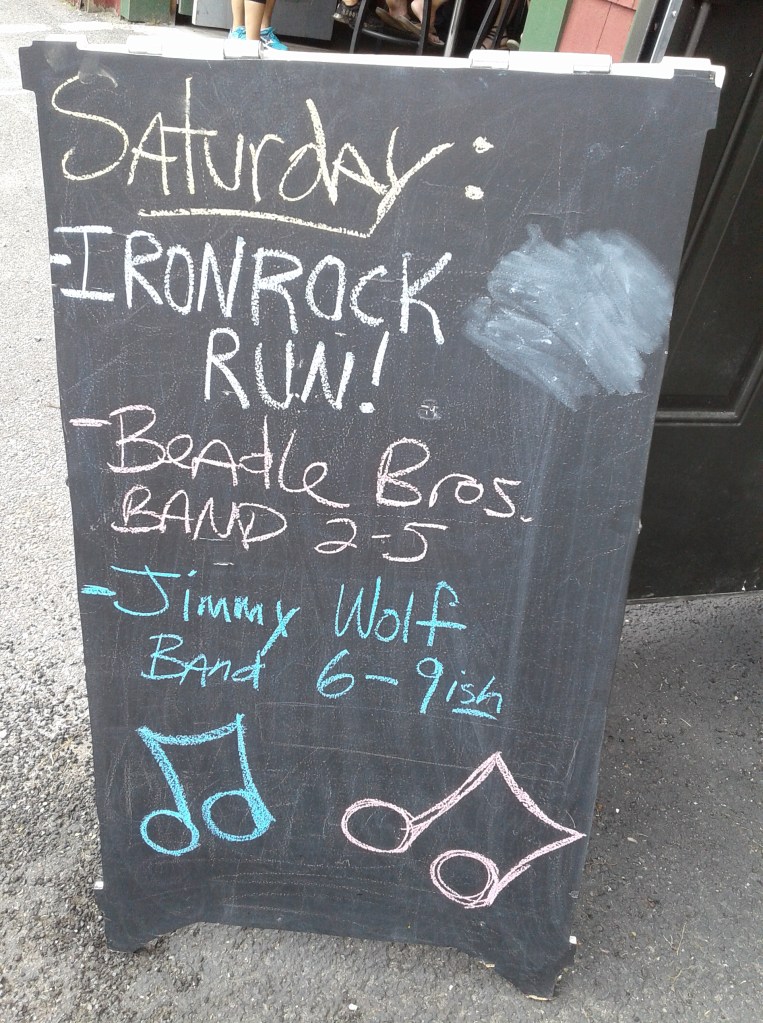 Saturday:
-IRONROCK
RUN!
-Beadle Bros.
BAND 2-5
-Jimmy Wolf
Band 6-9ish